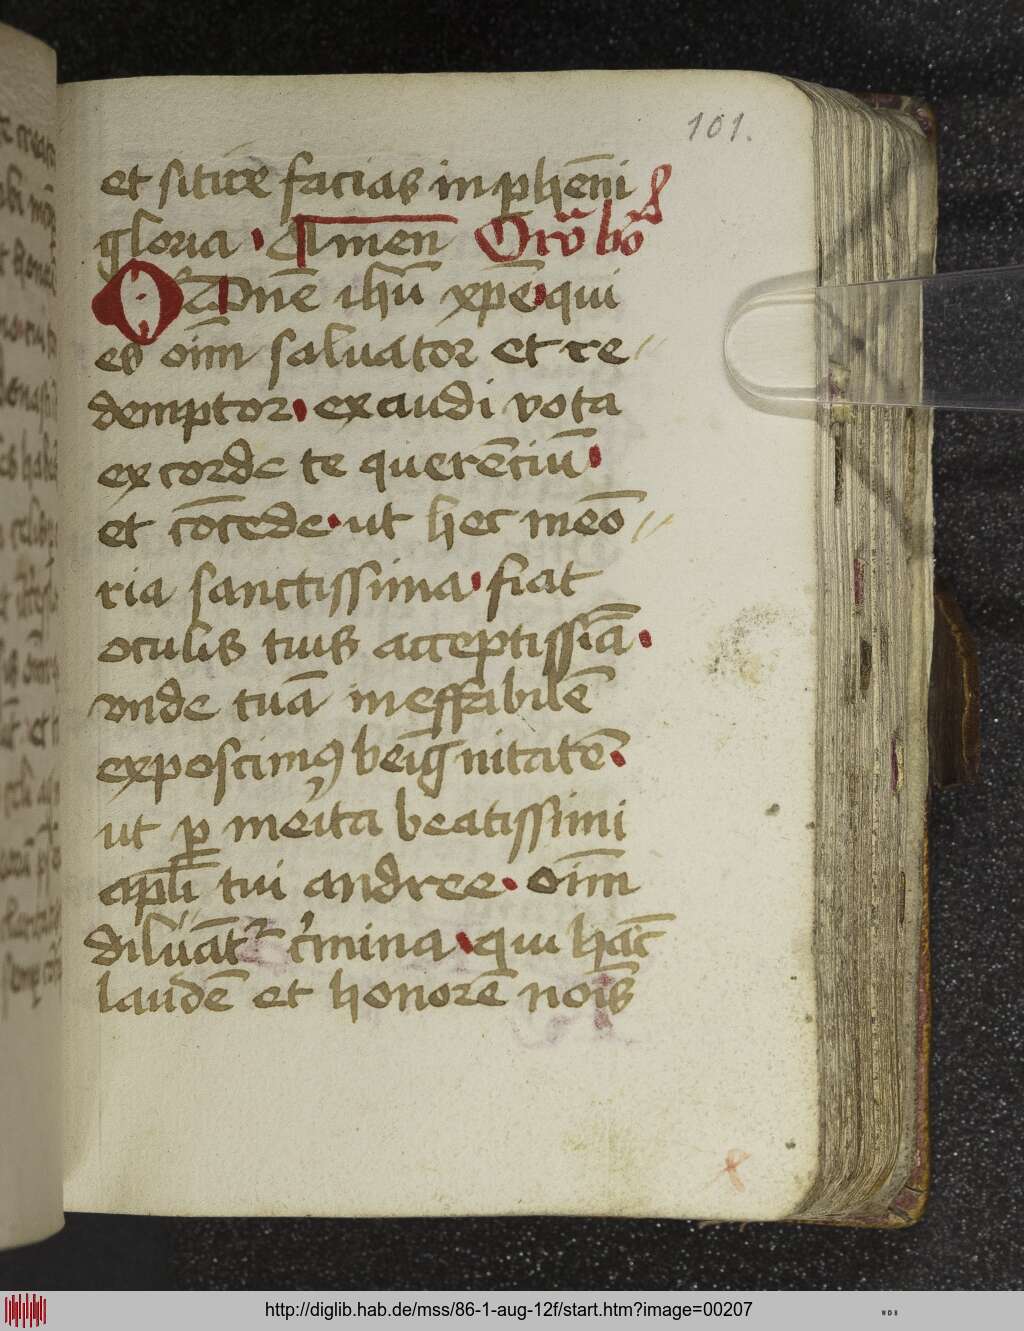 101.
et sitire facias in phēni
gloria · Amen Orō bōa
O Dn̄e ihū xp̄e · qui
es oīm saluator et re〃
demptor · exaudi vota
ex corde te querēciū ·
et cōcede · ut hec meō〃
ria sanctissima · fiat
oculis tuis acceptissīa ·
vnde tuā ineffabilē
exposcimꝰ beīgnitatē ·
ut ꝑ meīta beatissimi
apl̄i tui andree · oīm
c̓mina · qui hāc
laudē et honorē noīs
http://diglib.hab.de/mss/86-1-aug-12f/start.htm?image=00207